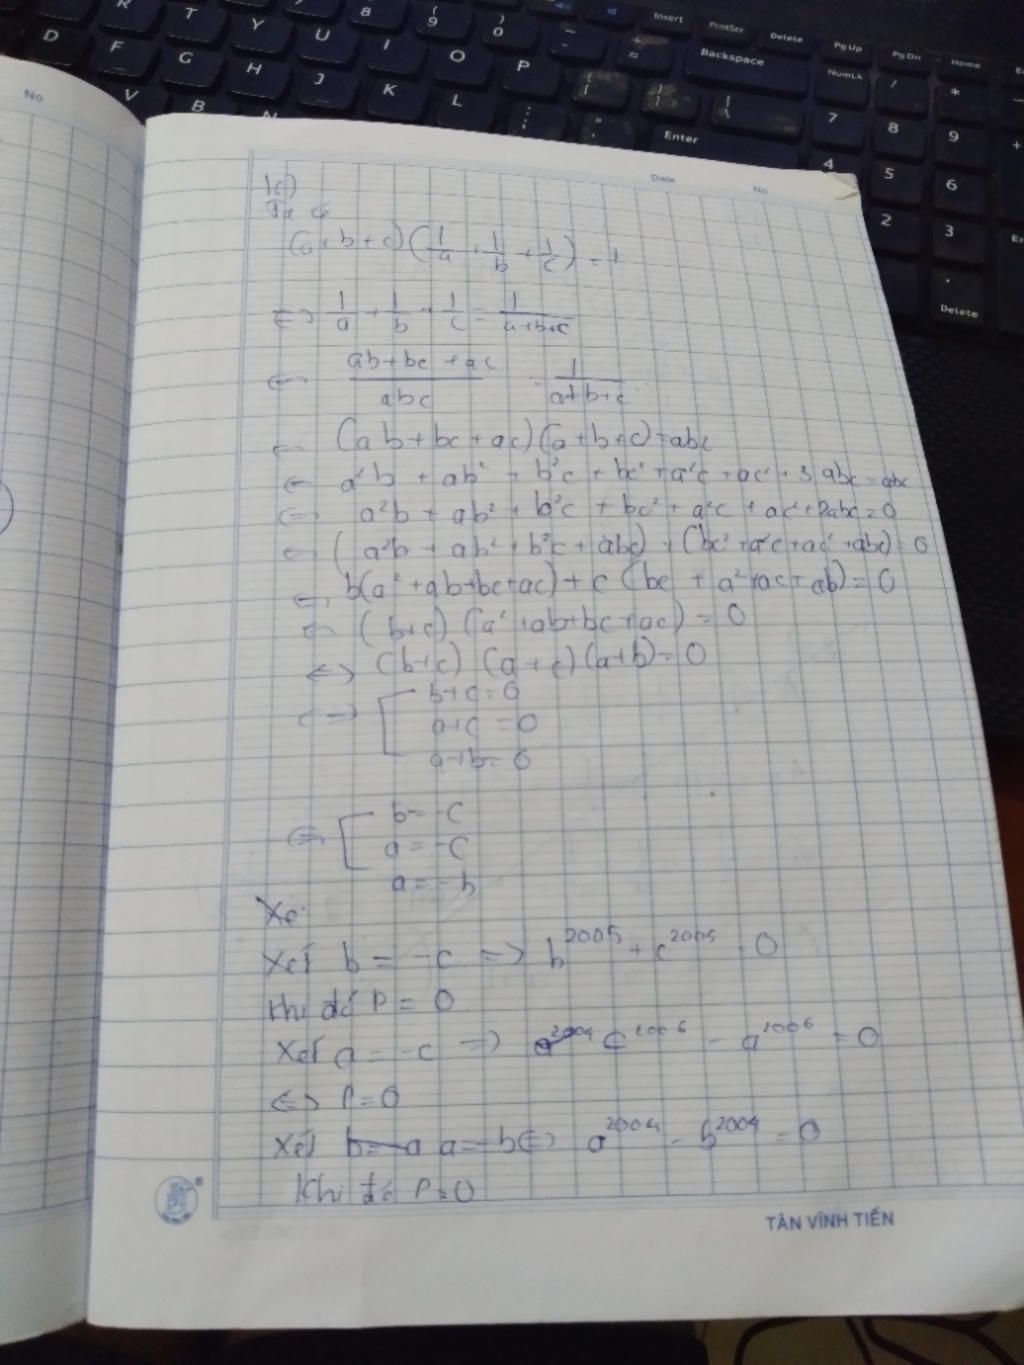 R T Y U 8 ( 9 ) 0 - _ + = Insert PrntScr Delete Pg Up Pg Dn Home
D F G H I O P Backspace NumLk / *
V B J K L Enter 7 8 9 +
4 5 6
2 3
. Delete
No
Date No
1c)
Ta có
(a+b+c)(1/a + 1/b + 1/c) = 1
<=> 1/a + 1/b + 1/c = 1/(a+b+c)
<=> (ab+bc+ac)/abc = 1/(a+b+c)
<=> (ab+bc+ac)(a+b+c)=abc
<=> a²b + ab² + b²c + bc² + a²c + ac² + 3abc = abc
<=> a²b + ab² + b²c + bc² + a²c + ac² + 2abc = 0
<=> (a²b + ab² + b²c + abc) + (bc² + a²c + ac² + abc) = 0
<=> b(a² + ab+bc+ac) + c (bc + a² + ac + ab) = 0
<=> (b+c) (a² + ab + bc + ac) = 0
<=> (b+c) (a+c) (a+b) = 0
<=> [ b+c = 0
a+c = 0
a+b = 0
<=> [ b = -c
a = -c
a = -b
Xé
Xét b = -c => b²⁰⁰⁵ + c²⁰⁰⁵ = 0
Khi đó P = 0
Xét a = -c => c²⁰⁰⁶ - a²⁰⁰⁶ = 0
<=> P = 0
Xét a = -b => a²⁰⁰⁴ - b²⁰⁰⁴ = 0
Khi đó P = 0
TÂN VĨNH TIẾN